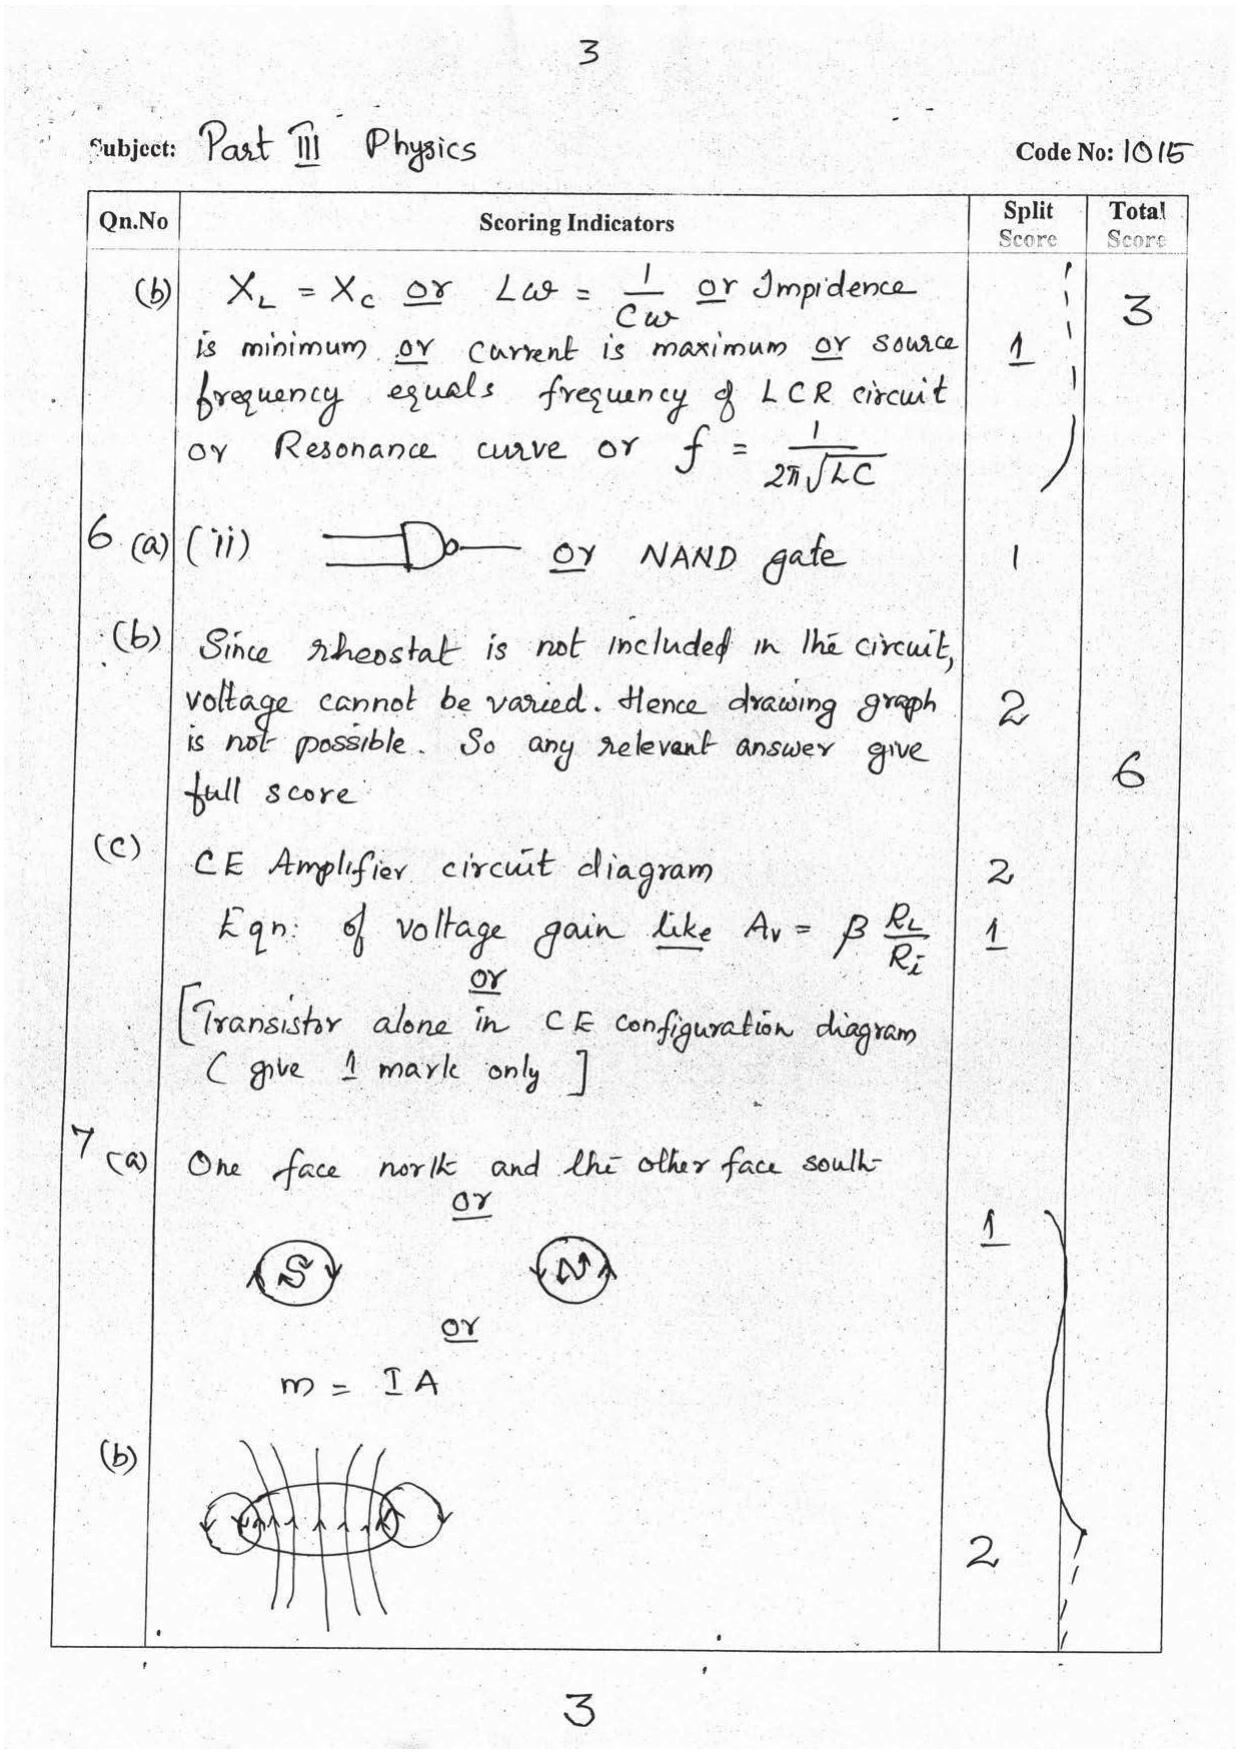 3
Subject: Part III Physics
Code No: 1015
Qn.No Scoring Indicators Split Score Total Score
(b) X_L = X_C or Lω = 1/Cω or Impidence
is minimum or current is maximum or source 1 3
frequency equals frequency of LCR circuit
or Resonance curve or f = 1/2π√LC
6 (a) (ii) or NAND gate 1
(b) Since rheostat is not included in the circuit,
voltage cannot be varied. Hence drawing graph 2
is not possible. So any relevant answer give 6
full score
(c) CE Amplifier circuit diagram 2
Eqn: of voltage gain like Av = β R_L/R_i 1
or
[Transistor alone in CE configuration diagram
( give 1 mark only ]
7 (a) One face north and the other face south
or
1
S N
or
m = IA
(b)
2
3